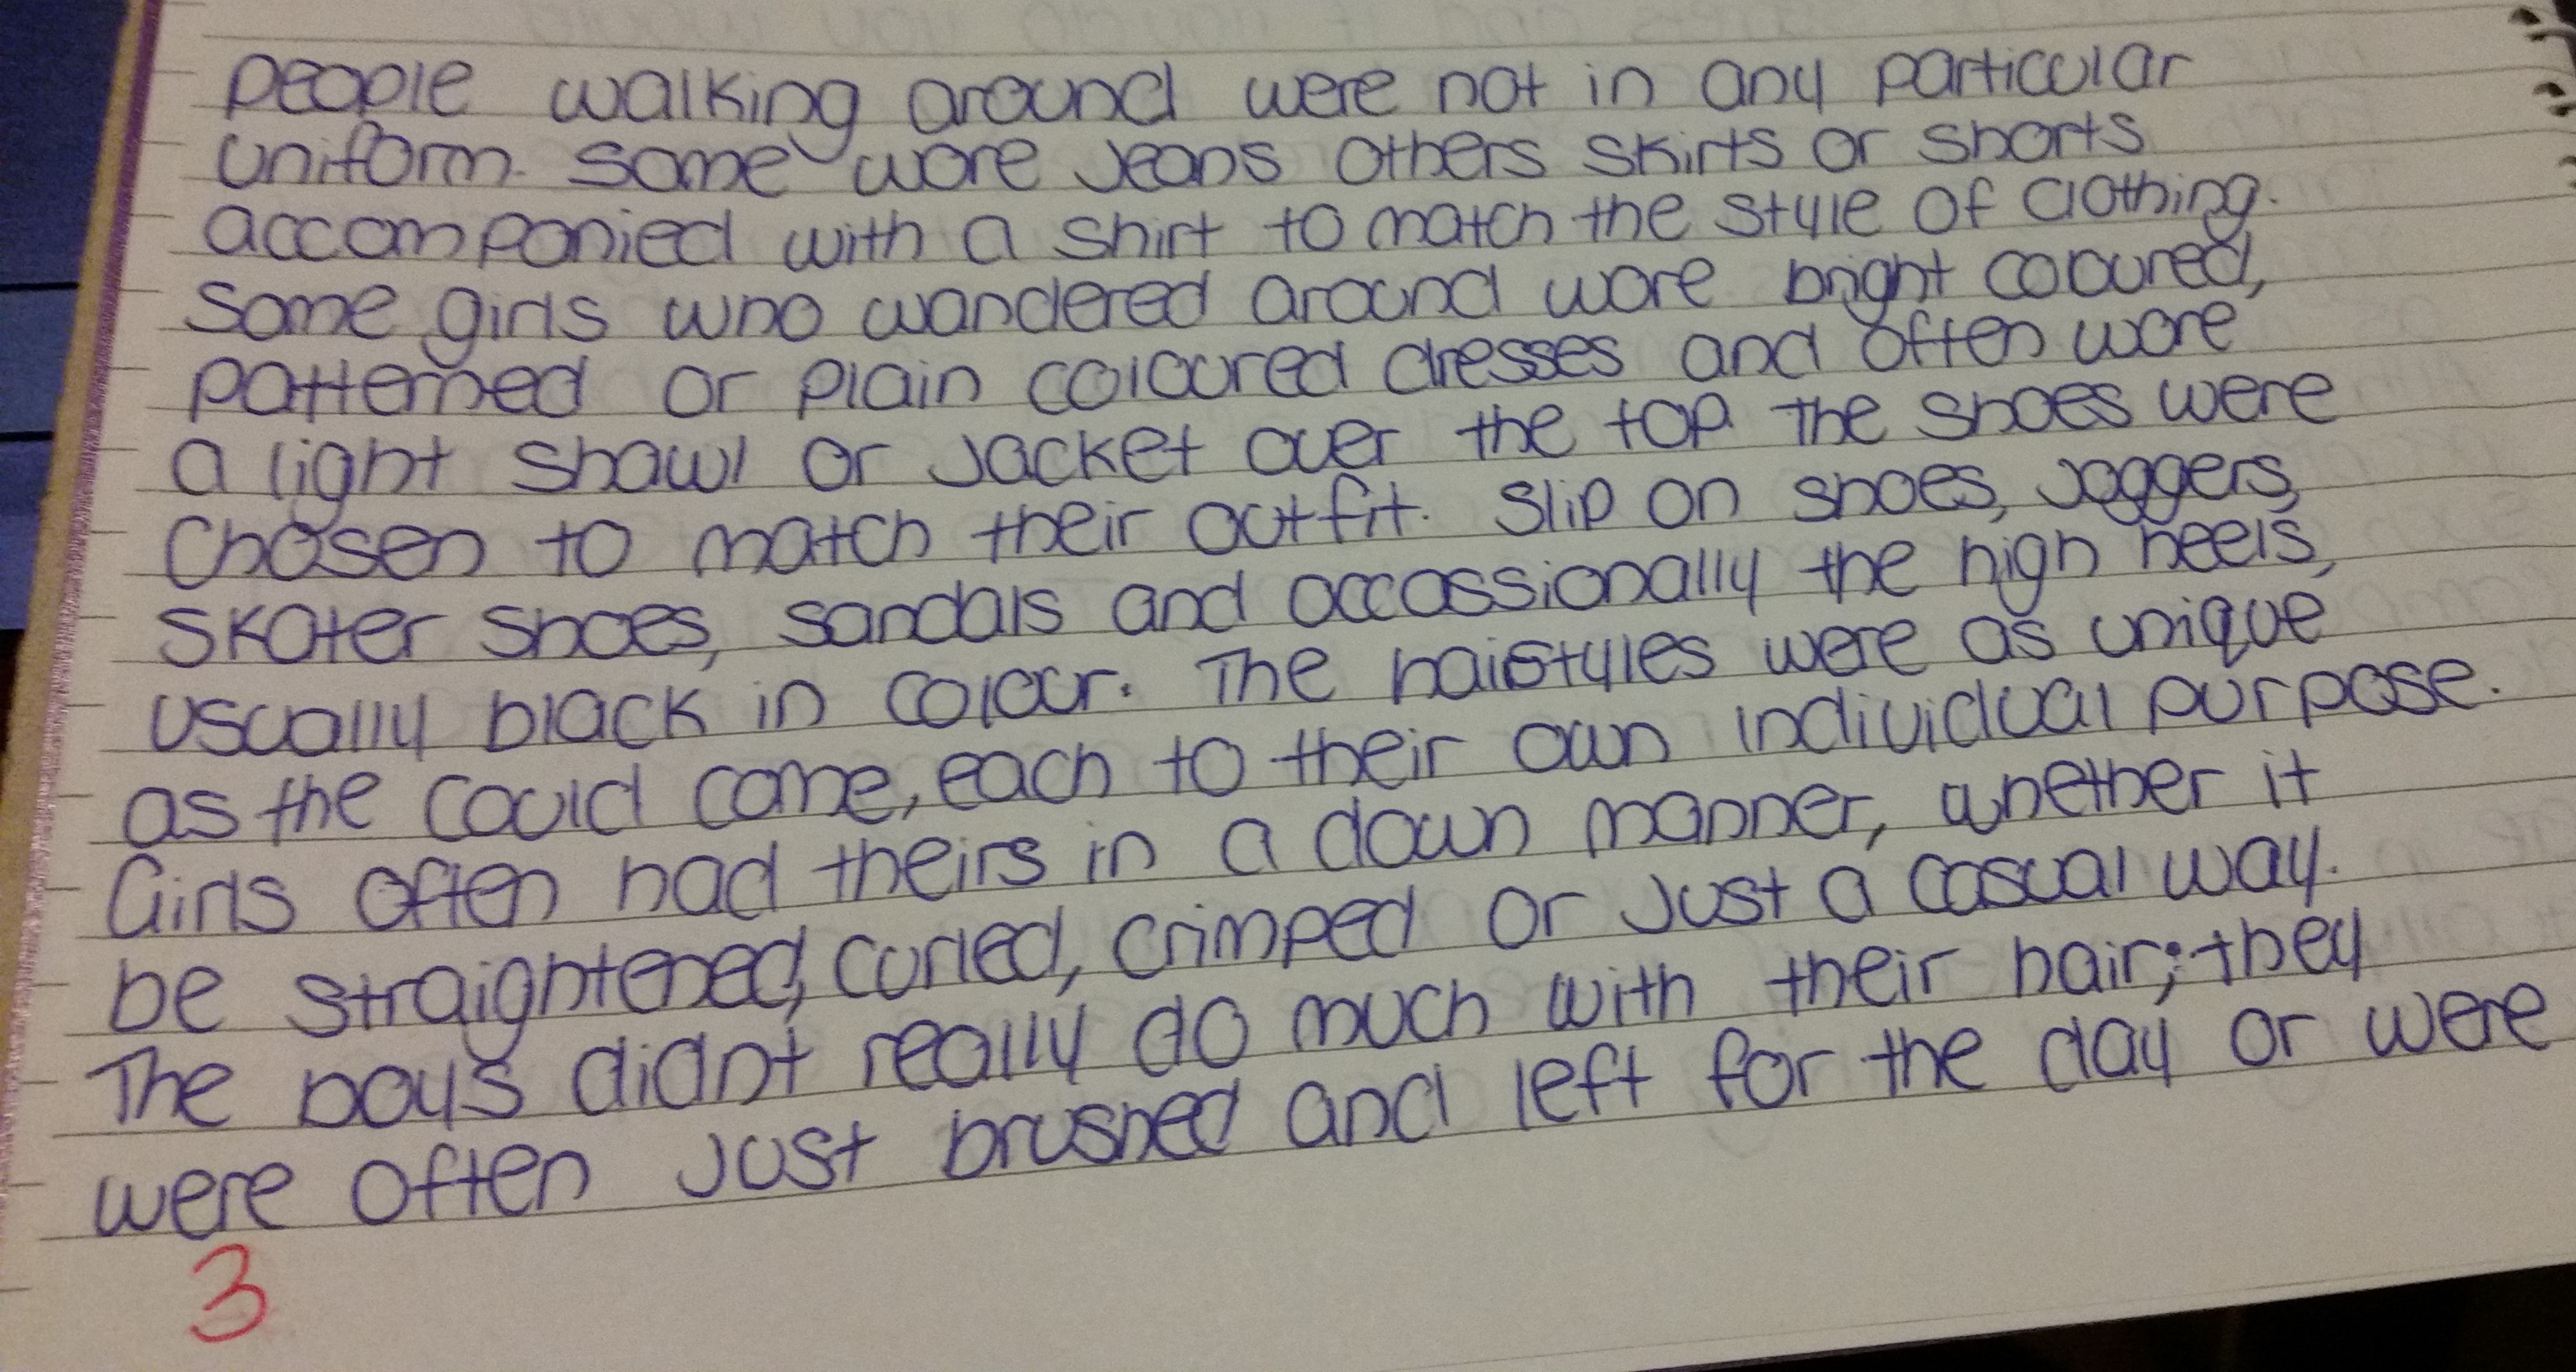 people walking around were not in any particular
uniform. some wore jeans others skirts or shorts
accompanied with a shirt to match the style of clothing.
some girls who wandered around wore bright cooured,
patterned or plain coloured dresses and often wore
a light shawl or jacket over the top. The shoes were
chosen to match their outfit. Slip on shoes, joggers,
skater shoes, sandals and occassionally the high heels,
usually black in colour. The haistyles were as unique
as the could come, each to their own individual purpose.
Girls often had theirs in a down manner, whether it
be straightened, curled, crimped or just a casual way.
The boys didnt really do much with their hair; they
were often just brushed and left for the day or were
3